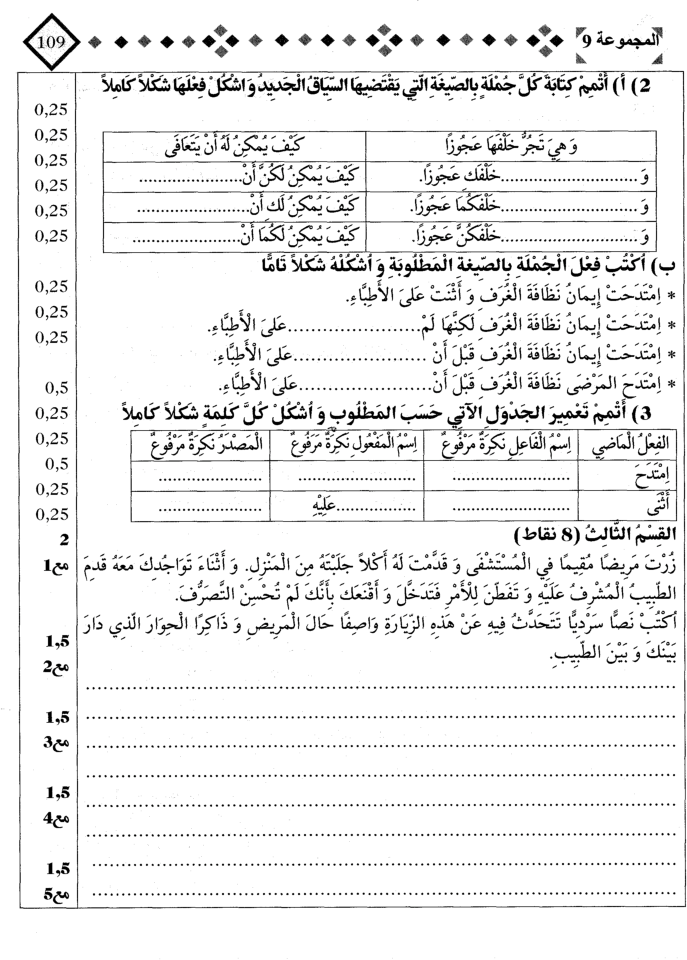 المجموعة 9
109
2) أ) أُتْمِمْ كِتَابَةَ كُلَّ جُمْلَةٍ بِالصِّيغَةِ الَّتِي يَقْتَضِيهَا السِّيَاقُ الْجَدِيدُ وَ اشْكُلْ فِعْلَهَا شَكْلاً كَامِلاً
0,25
وَ هِيَ تَجُرُّ خَلْفَهَا عَجُوزًا | كَيْفَ يُمْكِنُ لَهُ أَنْ يَتَعَافَى
0,25
0,25
وَ............................خَلْفَكِ عَجُوزًا. | كَيْفَ يُمْكِنُ لَكُنَّ أَنْ.....................
0,25
وَ............................خَلْفَكُمَا عَجُوزًا. | كَيْفَ يُمْكِنُ لَكِ أَنْ.....................
0,25
وَ............................خَلْفَكُنَّ عَجُوزًا. | كَيْفَ يُمْكِنُ لَكُمَا أَنْ.....................
0,25
ب) اُكْتُبْ فِعْلَ الْجُمْلَةِ بِالصِّيغَةِ الْمَطْلُوبَةِ وَ اُشْكُلْهُ شَكْلاً تَامًّا
* اِمْتَدَحَتْ إِيمَانُ نَظَافَةَ الْغُرَفِ وَ أَثْنَتْ عَلَىَ الْأَطِبَّاءِ.
0,25
* اِمْتَدَحَتْ إِيمَانُ نَظَافَةَ الْغُرَفِ لَكِنَّهَا لَمْ.........................عَلىَ الْأَطِبَّاءِ.
0,25
* اِمْتَدَحَتْ إِيمَانُ نَظَافَةَ الْغُرَفِ قَبْلَ أَنْ .........................عَلىَ الْأَطِبَّاءِ.
0,25
* اِمْتَدَحَ المَرْضَى نَظَافَةَ الْغُرَفِ قَبْلَ أَنْ.........................عَلىَ الْأَطِبَّاءِ.
0,5
3) أَتْمِمْ تَعْمِيرَ الْجَدْوَلِ الآتِي حَسَبَ المَطْلُوبِ وَ اُشْكُلْ كُلَّ كَلِمَةٍ شَكْلاً كَامِلاً
0,25
الفِعْلُ الْمَاضِي | اِسْمُ الْفَاعِلِ نَكِرَةٌ مَرْفُوعٌ | اِسْمُ الْمَفْعُولِ نَكِرَةٌ مَرْفُوعٌ | الْمَصْدَرُ نَكِرَةٌ مَرْفُوعٌ
0,25
اِمْتَدَحَ | ........................ | ........................ | .....................
0,5
0,25
أَثْنَى | ........................ | ................عَلَيْهِ | .....................
0,25
القِسْمُ الثَّالِثُ (8 نقاط)
2
زُرْتَ مَرِيضًا مُقِيمًا فِي الْمُسْتَشْفَى وَ قَدَّمْتَ لَهُ أَكْلاً جَلَبْتَهُ مِنَ الْمَنْزِلِ. وَ أَثْنَاءَ تَوَاجُدِكَ مَعَهُ قَدِمَ
مع1
الطَّبِيبُ الْمُشْرِفُ عَلَيْهِ وَ تَفَطَّنَ لِلْأَمْرِ فَتَدَخَّلَ وَ أَقْنَعَكَ بِأَنَّكَ لَمْ تُحْسِنْ التَّصَرُّفَ.
اُكْتُبْ نَصًّا سَرْدِيًّا تَتَحَدَّثُ فِيهِ عَنْ هَذِهِ الزِّيَارَةِ وَاصِفًا حَالَ الْمَرِيضِ وَ ذَاكِرًا الْحِوَارَ الَّذِي دَارَ
1,5
بَيْنَكَ وَ بَيْنَ الطَّبِيبِ.
مع2
1,5
مع3
1,5
مع4
1,5
مع5